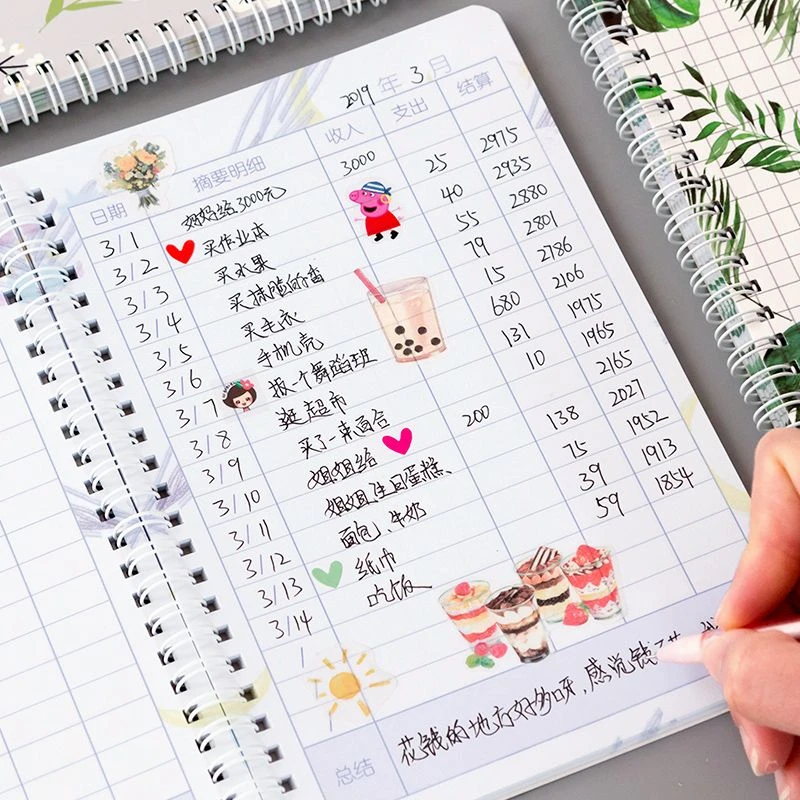 2019 年 3 月
日期 摘要明细 收入 支出 结算
3/1 妈妈给3000元 3000
3/2 买作业本 25 2975
3/3 买水果 40 2935
3/4 买抹脸的香 55 2880
3/5 买毛衣 79 2801
3/6 手机壳 15 2786
3/7 报一个舞蹈班 680 2106
3/8 逛超市 131 1975
3/9 买了一束百合 10 1965
3/10 姐姐给 200 2165
3/11 姐姐生日蛋糕、 138 2027
3/12 面包、牛奶 75 1952
3/13 纸巾 39 1913
3/14 吃饭 59 1854
/
总结 花钱的地方好多呀,感觉钱